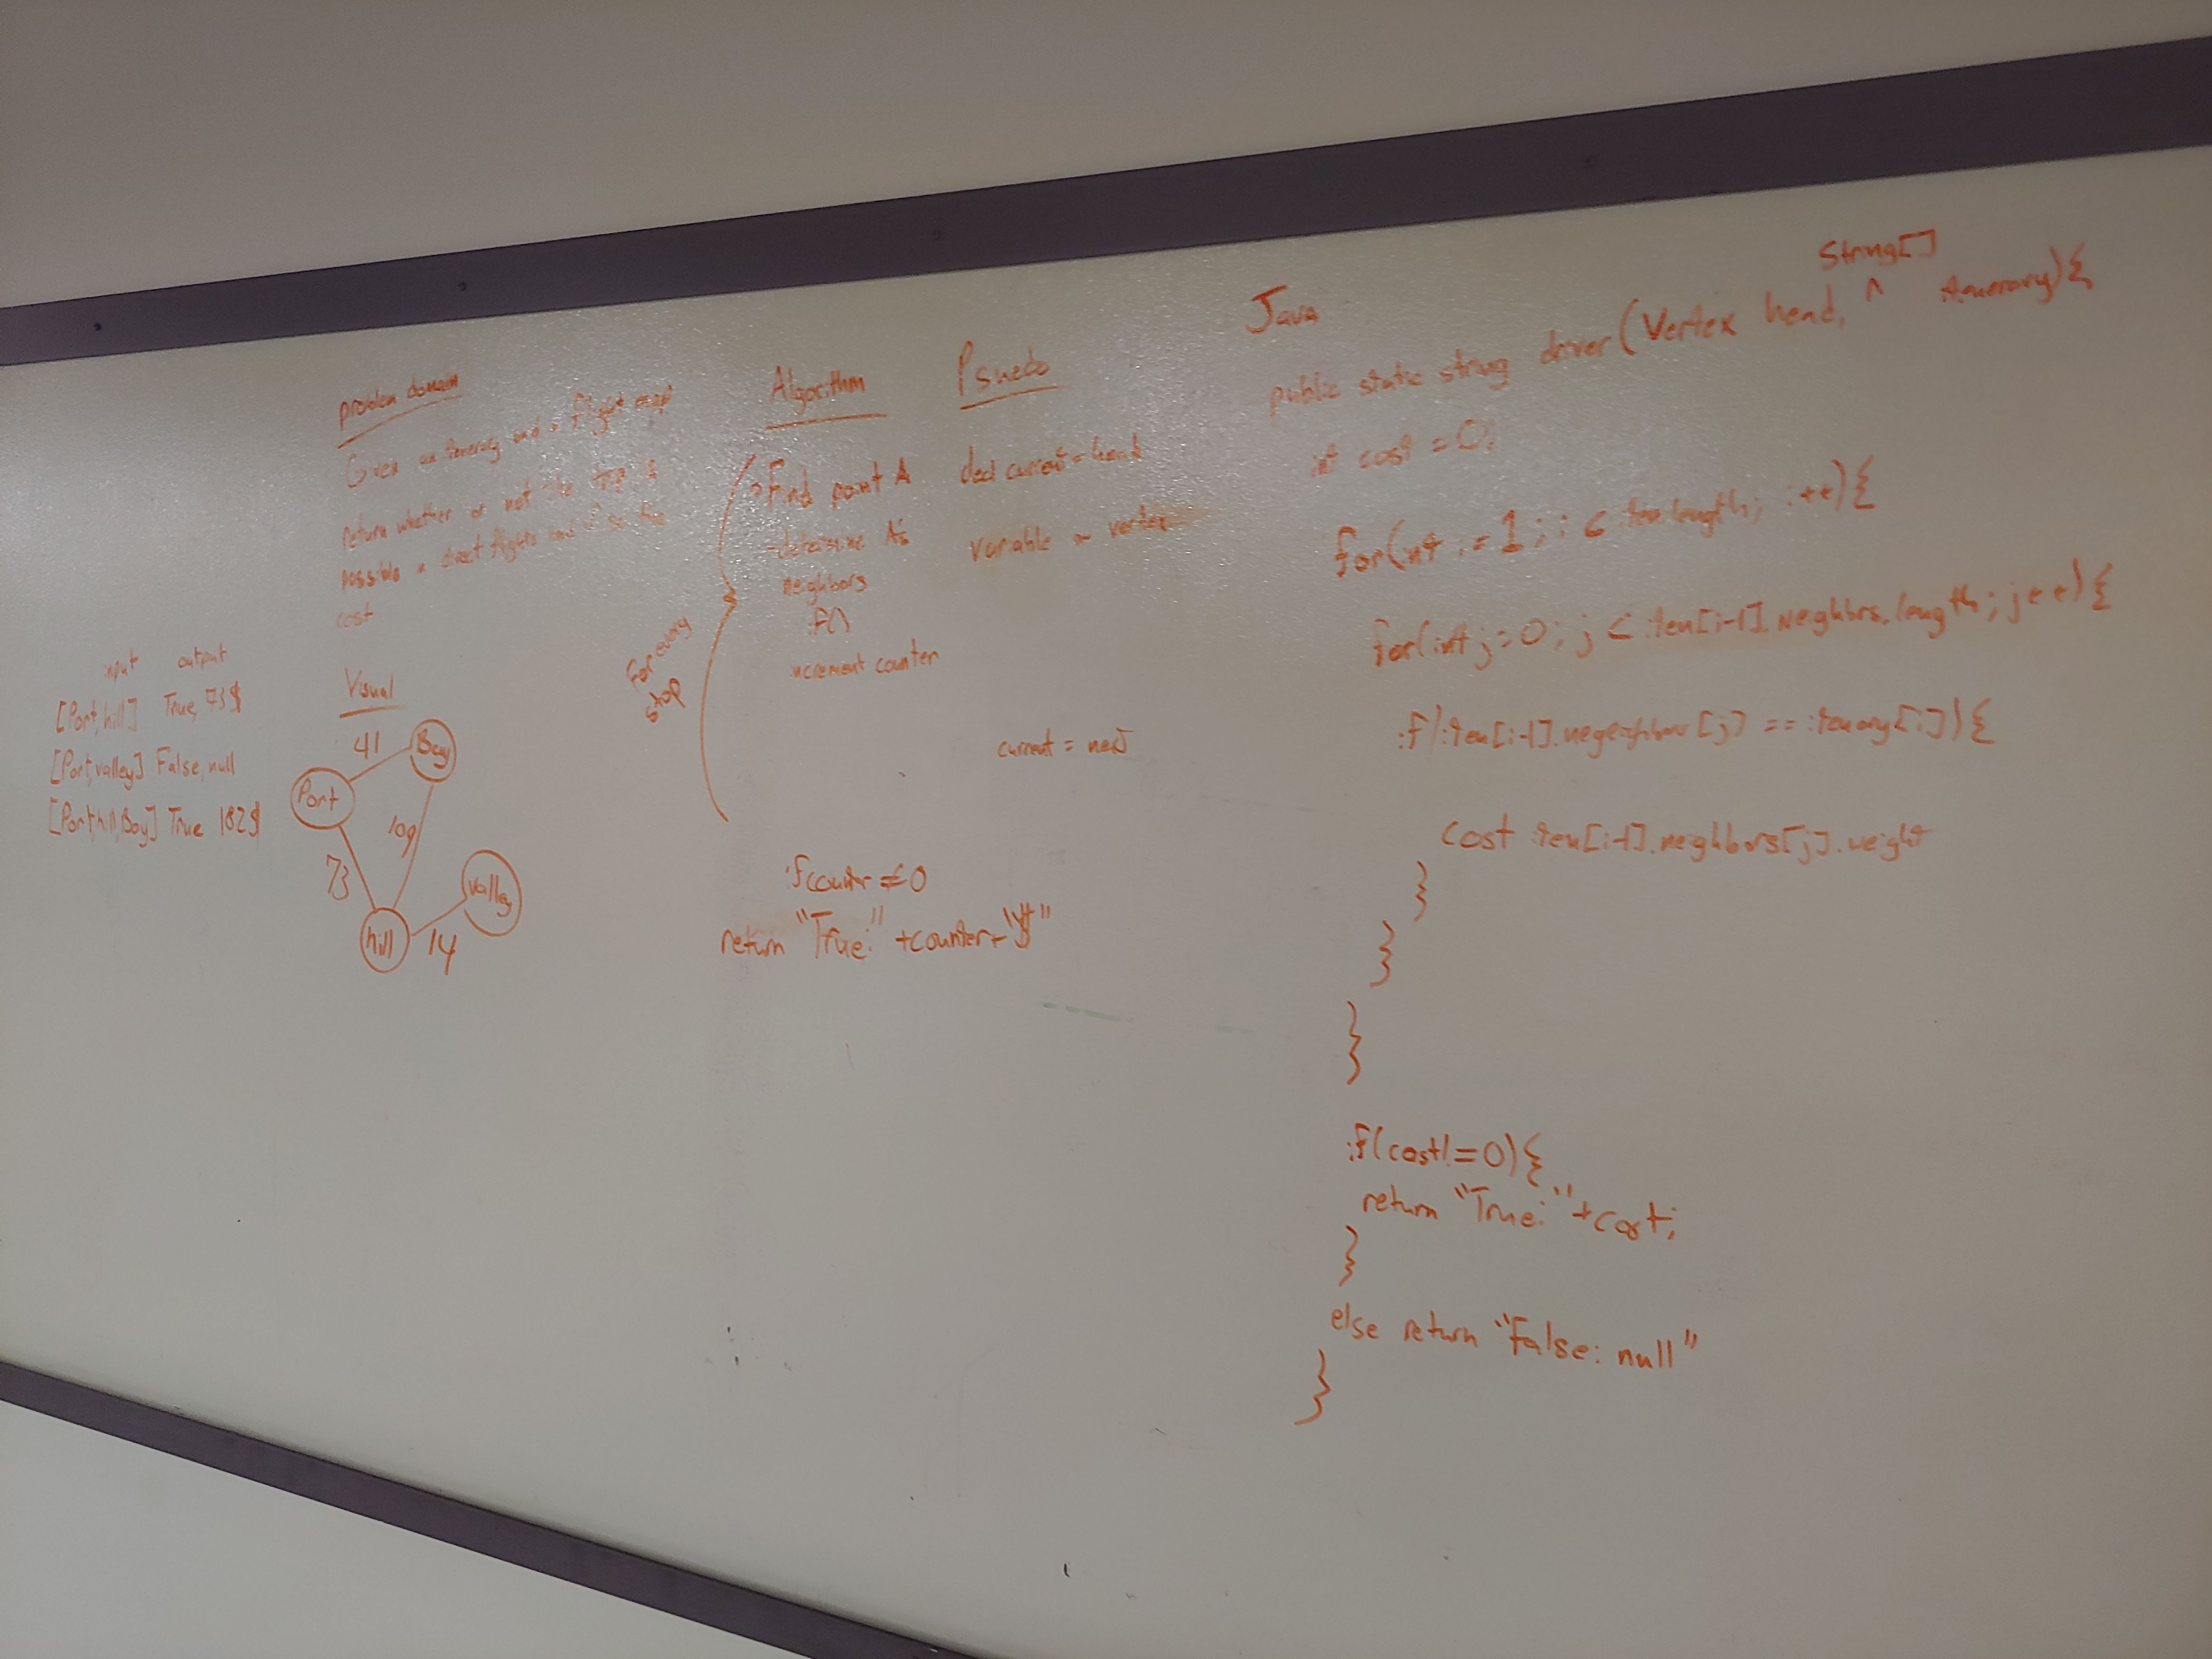 problem domain
Given an itenerary and a flight map
return whether or not the trip is
possible in direct flights and if so the
cost
input output
[Port, hill] True, 73$
[Port, valley] False, null
[Port, hill, Bay] True 182$
Visual
41
Bay
Port
109
73
valley
hill
14
For every
stop
Algorithm
Find point A
-determine A's
neighbors
if()
increment counter
if counter ≠ 0
return "True:" +counter+"$"
Psuedo
decl current = head
variable
vertex
current = new
Java
String[]
public static string driver(Vertex head, ^ itenerary){
int cost = 0;
for(int i = 1; i < iten.length; i++){
for(int j=0; j < iten[i-1].neighbrs.length; j++){
if(iten[i-1].negeighbor[j] == itenary[i]){
cost iten[i-1].neighbors[j].weight
}
}
}
if(cost!=0){
return "True:" +cost;
}
else return "False: null"
}